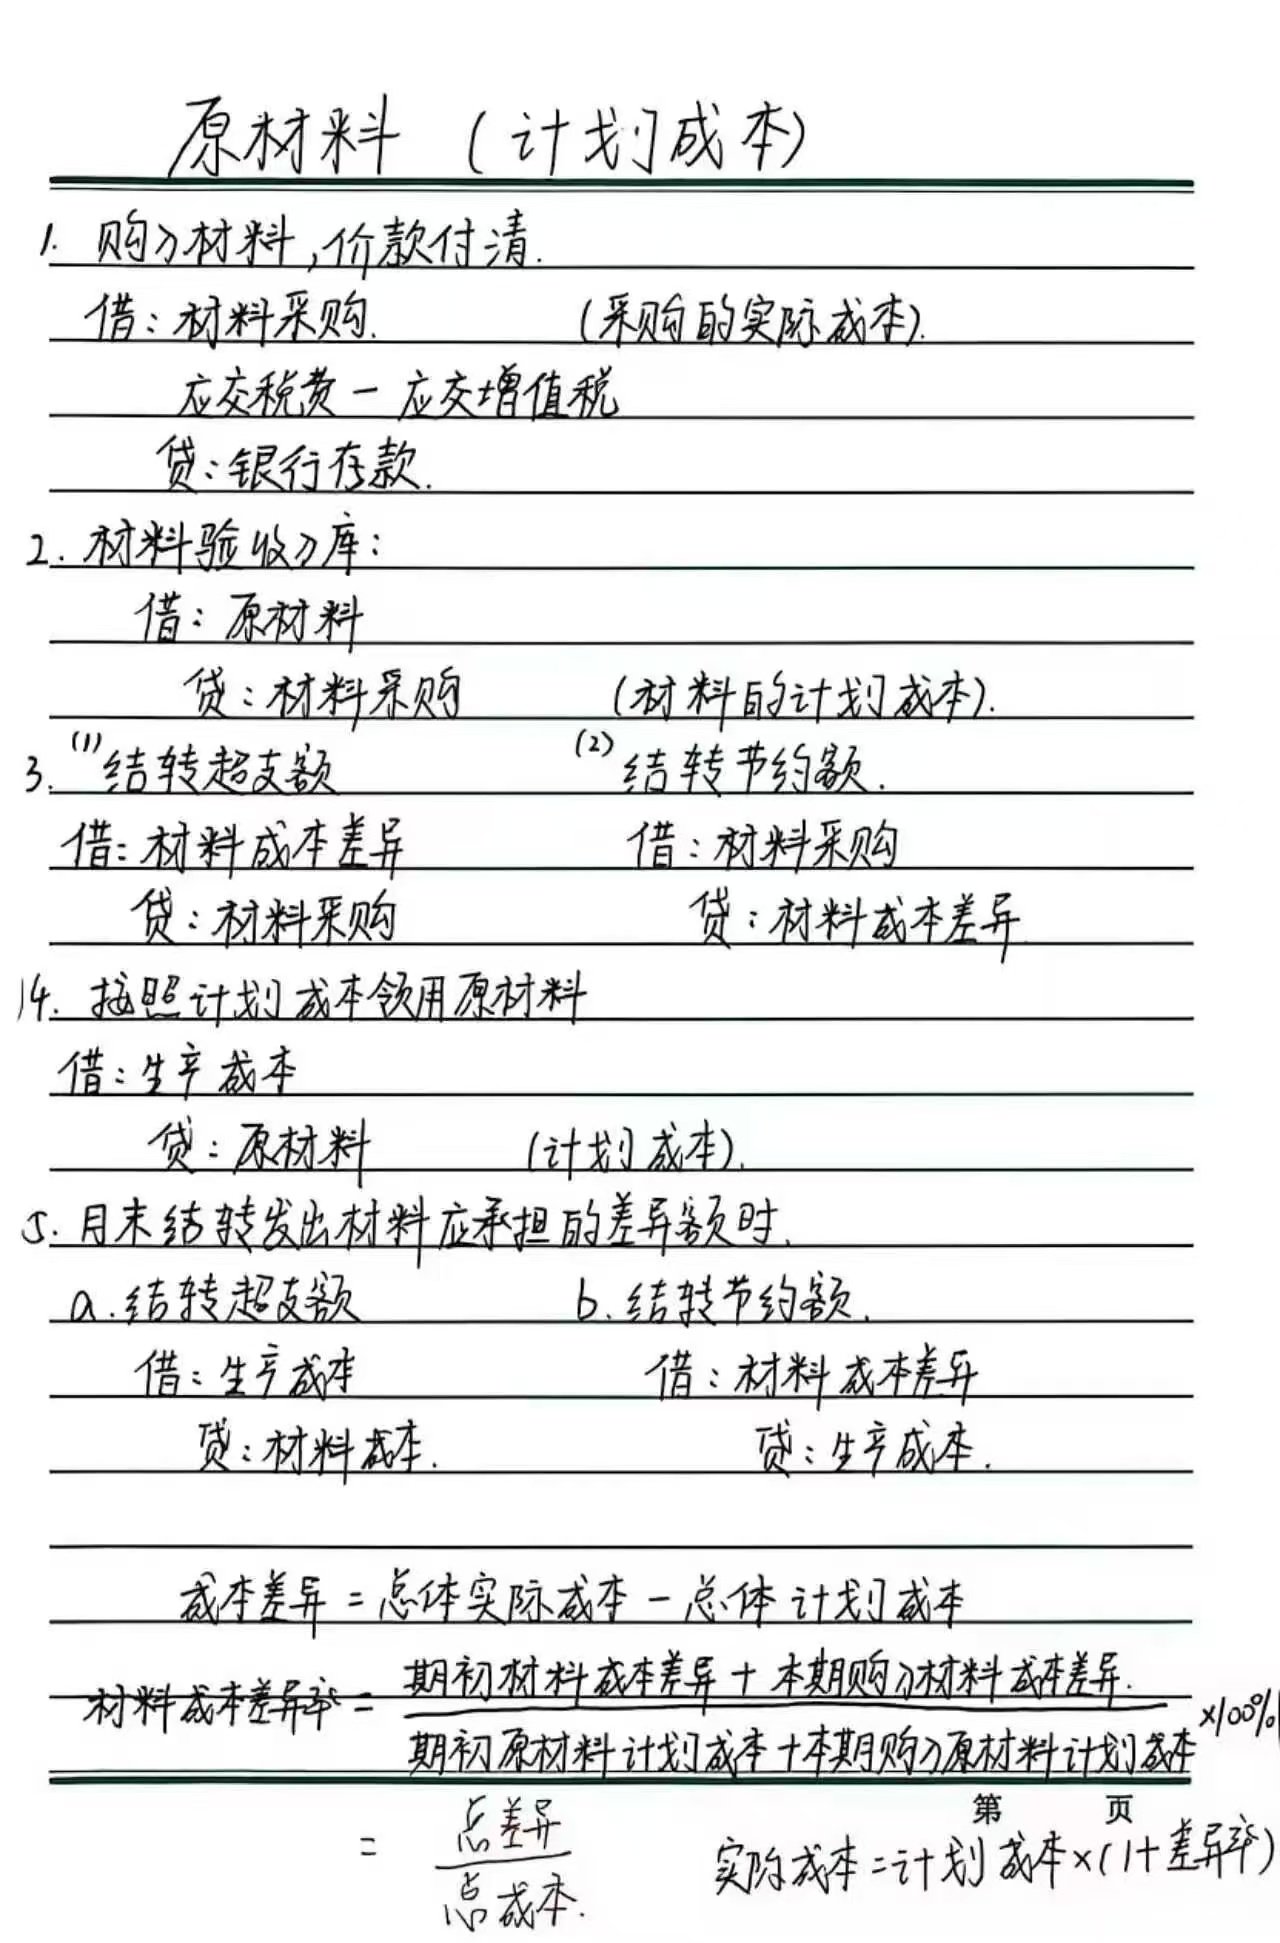 原材料 (计划成本)
1. 购入材料,价款付清.
借:材料采购. (采购的实际成本).
应交税费-应交增值税
贷:银行存款.
2. 材料验收入库:
借:原材料
贷:材料采购 (材料的计划成本).
3. (1)结转超支额 (2)结转节约额.
借:材料成本差异 借:材料采购
贷:材料采购 贷:材料成本差异
4. 按照计划成本领用原材料
借:生产成本
贷:原材料 (计划成本).
5. 月末结转发出材料应承担的差异额时.
a.结转超支额 b.结转节约额.
借:生产成本 借:材料成本差异
贷:材料成本. 贷:生产成本.
成本差异=总体实际成本-总体计划成本
材料成本差异率=
期初材料成本差异+本期购入材料成本差异.
期初原材料计划成本+本期购入原材料计划成本
×100%
第 页
= 总差异
总成本.
实际成本=计划成本×(1+差异率)